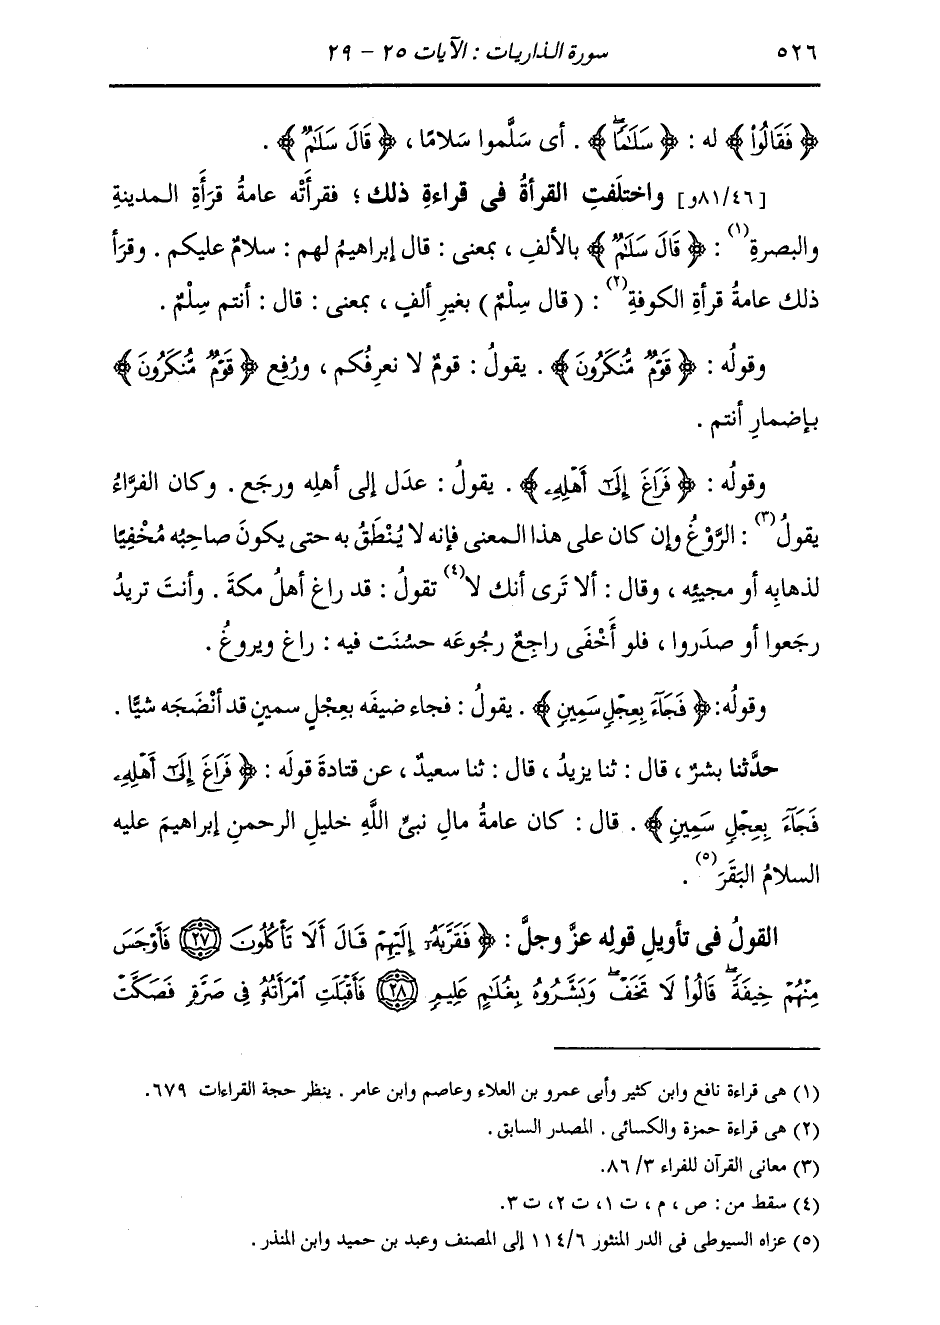 ٥٢٦ سورة الذاريات : الآيات ٢٥ - ٢٩
﴿ فَقَالُوا۟ ﴾ له : ﴿ سَلَـٰمًاۖ ﴾ . أى سَلَّموا سَلامًا ، ﴿ قَالَ سَلَـٰمٌ ﴾ .
[٨١/٤٦و] واختلَفتِ القرأةُ فى قراءةِ ذلك ؛ فقرأَتْه عامةُ قرَأَةِ المدينةِ
والبصرةِ(١) : ﴿ قَالَ سَلَـٰمٌ ﴾ بالألفِ ، بمعنى : قال إبراهيمُ لهم : سلامٌ عليكم . وقرَأ
ذلك عامةُ قرأةِ الكوفةِ(٢) : ( قال سِلْمٌ ) بغيرِ ألفٍ ، بمعنى : قال : أنتم سِلْمٌ .
وقولُه : ﴿ قَوْمٌ مُّنكَرُونَ ﴾ . يقولُ : قومٌ لا نعرِفُكم ، ورُفِع ﴿ قَوْمٌ مُّنكَرُونَ ﴾
بإضمارِ أنتم .
وقولُه : ﴿ فَرَاغَ إِلَىٰٓ أَهْلِهِۦ ﴾ . يقولُ : عدَل إلى أهلِه ورجَع . وكان الفرَّاءُ
يقولُ(٣) : الرَّوْغُ وإن كان على هذا المعنى فإنه لا يُنْطَقُ به حتى يكونَ صاحبُه مُخْفِيًا
لذهابِه أو مجيئِه ، وقال : ألا تَرى أنك لا(٤) تقولُ : قد راغ أهلُ مكةَ . وأنتَ تريدُ
رجَعوا أو صدَروا ، فلو أَخْفَى راجِعٌ رجُوعَه حسُنَت فيه : راغ ويروغُ .
وقولُه: ﴿ فَجَآءَ بِعِجْلٍ سَمِينٍ ﴾ . يقولُ : فجاء ضيفَه بعِجْلٍ سمينٍ قد أنْضَجَه شيًّا .
حدَّثنا بشرٌ ، قال : ثنا يزيدُ ، قال : ثنا سعيدٌ ، عن قتادةَ قولَه : ﴿ فَرَاغَ إِلَىٰٓ أَهْلِهِۦ
فَجَآءَ بِعِجْلٍ سَمِينٍ ﴾ . قال : كان عامةُ مالِ نبىِّ اللَّهِ خليلِ الرحمنِ إبراهيمَ عليه
السلامُ البَقَرَ(٥) .
القولُ فى تأويلِ قولِه عزَّ وجلَّ : ﴿ فَقَرَّبَهُۥٓ إِلَيْهِمْ قَالَ أَلَا تَأْكُلُونَ ٢٧ فَأَوْجَسَ
مِنْهُمْ خِيفَةًۖ قَالُوا۟ لَا تَخَفْۖ وَبَشَّرُوهُ بِغُلَـٰمٍ عَلِيمٍ ٢٨ فَأَقْبَلَتِ ٱمْرَأَتُهُۥ فِى صَرَّةٍ فَصَكَّتْ
(١) هى قراءة نافع وابن كثير وأبى عمرو بن العلاء وعاصم وابن عامر . ينظر حجة القراءات ٦٧٩.
(٢) هى قراءة حمزة والكسائى . المصدر السابق .
(٣) معانى القرآن للفراء ٣/ ٨٦.
(٤) سقط من : ص ، م ، ت ١، ت ٢، ت ٣.
(٥) عزاه السيوطى فى الدر المنثور ١١٤/٦ إلى المصنف وعبد بن حميد وابن المنذر .